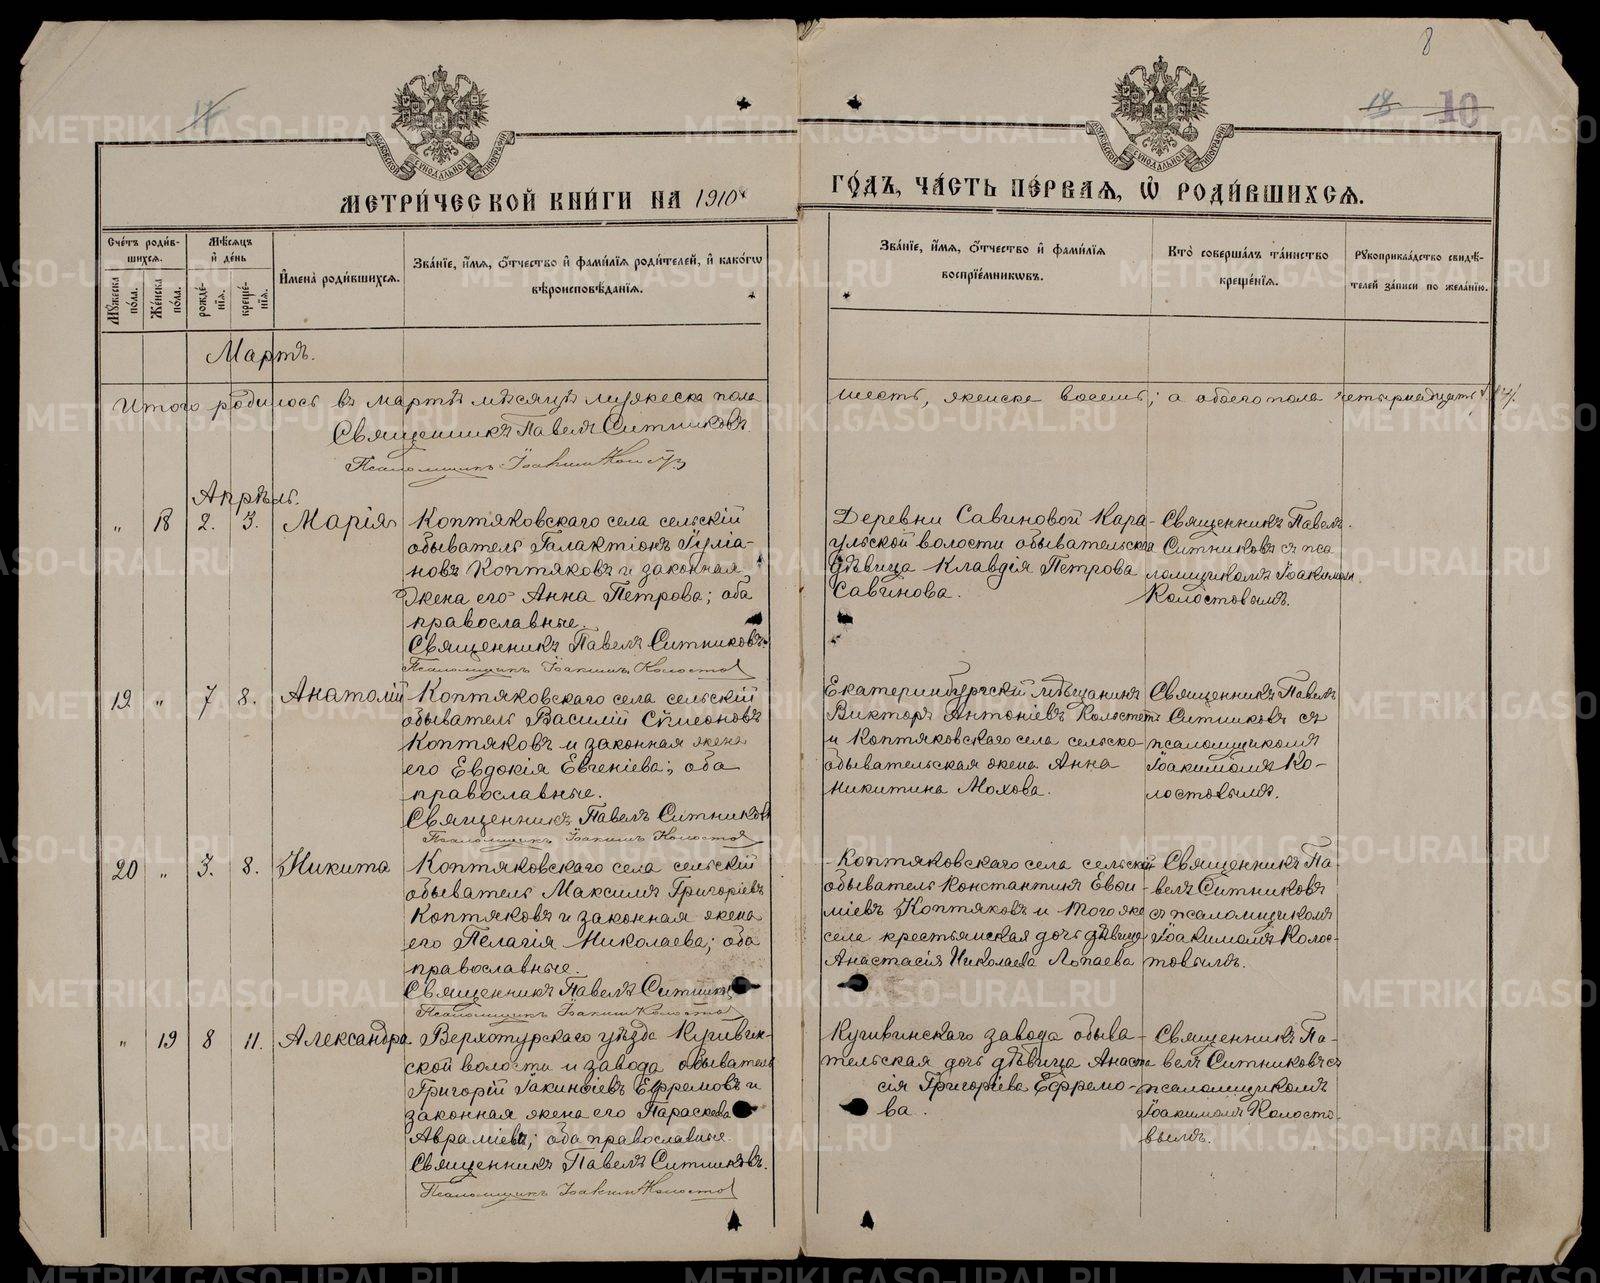 8
18 10
МЕТРИ́ЧЕСКОЙ КНИ́ГИ НА 1910
ГО́ДЪ, ЧА́СТЬ ПЕ́РВАЯ, Ѡ҆ РОДИ́ВШИХСѦ.
Сче́тъ роди́в-
шихсѧ.
Мꙋ́жеска по́ла.
Же́нска по́ла.
Мѣ́сѧцъ и҆ де́нь
рожде́нїѧ.
креще́нїѧ.
И҆мена̀ роди́вшихсѧ.
Зва́нїе, и҆́мѧ, ѻ҆́тчество и҆ фами́лїѧ роди́телей, и҆ како́гѡ
вѣроисповѣ́данїѧ.
Зва́нїе, и҆́мѧ, ѻ҆́тчество и҆ фами́лїѧ
воспрїе́мникѡвъ.
Кто̀ соверша́лъ та́инство
креще́нїѧ.
Рꙋкоприкла́дство свидѣ́-
телей за́писи по жела́нїю.
Мартъ.
Итого родилось въ мартѣ мѣсяцѣ мужеска пола
шесть, женска восемь; а обоего пола четырнадцать 14/.
Священникъ Павелъ Ситниковъ.
Псаломщикъ Іоакимъ
Апрѣль.
„ 18 2. 3. Марія
Коптяковскаго села сельскій
обыватель Галактіонъ Іуліа-
новъ Коптяковъ и законная
жена его Анна Петрова; оба
православные.
Священникъ Павелъ Ситниковъ.
Псаломщикъ Іоакимъ Колостов
Деревни Савиновой Кара-
ульской волости обывательская
дѣвица Клавдія Петрова
Савинова.
Священникъ Павелъ
Ситниковъ съ пса
ломщикомъ Іоакимомъ
Колостовымъ.
19 „ 7 8. Анатолій
Коптяковскаго села сельскій
обыватель Василій Симеоновъ
Коптяковъ и законная жена
его Евдокія Евгеніева; оба
православные.
Священникъ Павелъ Ситниковъ
Псаломщикъ Іоакимъ Колостов
Екатеринбургскій мѣщанинъ
Викторъ Антоніевъ Колостовъ
и Коптяковскаго села сельско-
обывательская жена Анна
Никитина Мохова.
Священникъ Павелъ
Ситниковъ съ
псаломщикомъ
Іоакимомъ Ко-
лостовымъ.
20 „ 3. 8. Никита
Коптяковскаго села сельскій
обыватель Максимъ Григоріевъ
Коптяковъ и законная жена
его Пелагія Николаева; оба
православные.
Священникъ Павелъ Ситник
Псаломщикъ Іоакимъ Колостов
Коптяковскаго села сельскій
обыватель Константинъ Евфи-
міевъ Коптяковъ и того же
села крестьянская дочь дѣвица
Анастасія Николаева Лопаева
Священникъ Па-
велъ Ситниковъ
съ псаломщикомъ
Іоакимомъ Колос-
товымъ.
„ 19 8 11. Александра
Верхотурскаго уѣзда Кушвин-
ской волости и завода обыватель
Григорій Іакинѳіевъ Ефремовъ и
законная жена его Параскева
Авраміева; оба православные.
Священникъ Павелъ Ситниковъ.
Псаломщикъ Іоакимъ Колостов
Кушвинскаго завода обыва-
тельская дочь дѣвица Анаста
сія Григоріева Ефремо-
ва.
Священникъ Па-
велъ Ситниковъ съ
псаломщикомъ
Іоакимомъ Колосто-
вымъ.
METRIKI.GASO-URAL.RU